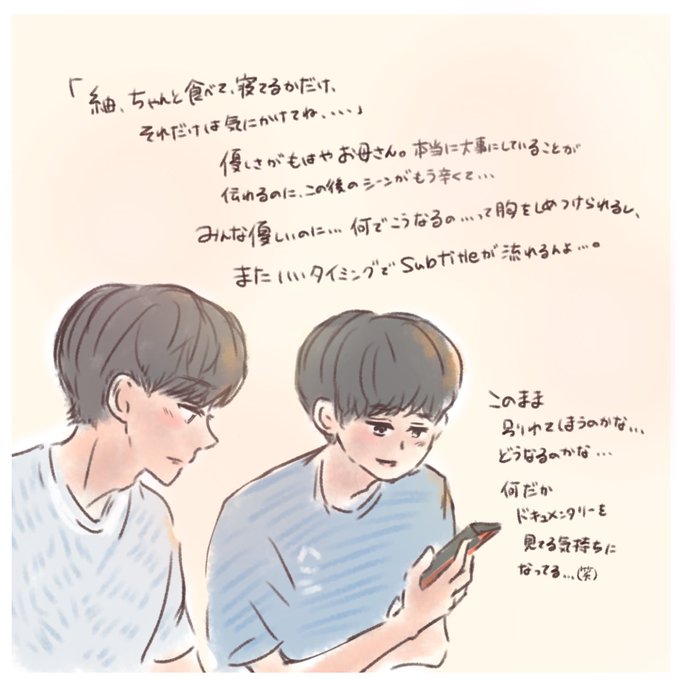 「紬、ちゃんと食べて、寝てるかだけ、
それだけは気にかけてね、、、、」
優しさがもはやお母さん。本当に大事にしていることが
伝わるのに、この後のシーンがもう辛くて…
みんな優しいのに… 何でこうなるの…って胸をしめつけられるし、
またいいタイミングでSubtitleが流れるんよ…。
このまま
別れてしまうのかな…
どうなるのかな…
何だか
ドキュメンタリーを
見てる気持ちに
なってる…(笑)